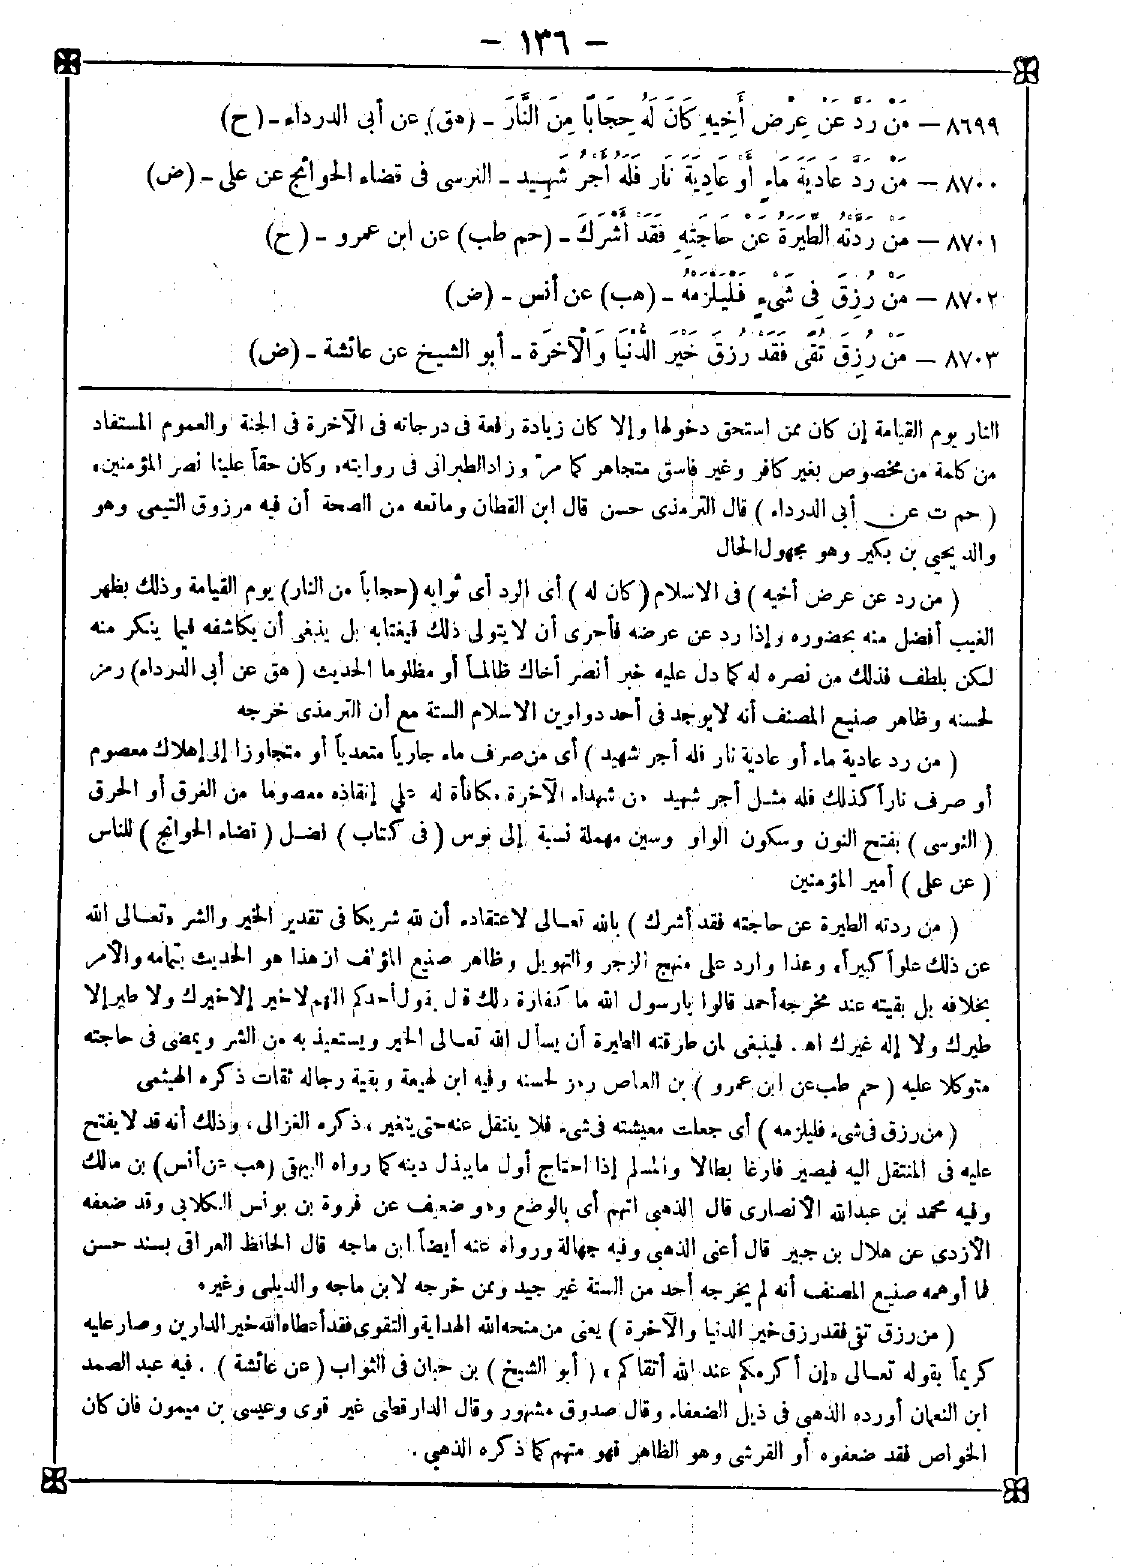 - ١٣٦ -
٨٦٩٩ – مَنْ رَدَّ عَنْ عِرْضِ أَخِيهِ كَانَ لَهُ حِجَابًا مِنَ النَّارِ - (هق) عن أبى الدرداء - (ح)
٨٧٠٠ – مَنْ رَدَّ عَادِيَةَ مَاءٍ أَوْ عَادِيَةَ نَارٍ فَلَهُ أَجْرُ شَهِيدٍ - النرسى فى قضاء الحوائج عن على - (ض)
٨٧٠١ – مَنْ رَدَّتْهُ الطِّيَرَةُ عَنْ حَاجَتِهِ فَقَدْ أَشْرَكَ - (حم طب) عن ابن عمرو - (ح)
٨٧٠٢ – مَنْ رُزِقَ فِى شَىْءٍ فَلْيَلْزَمْهُ - (هب) عن أنس - (ض)
٨٧٠٣ – مَنْ رُزِقَ تُقًى فَقَدْ رُزِقَ خَيْرَ الدُّنْيَا وَالْآخِرَةِ - أبو الشيخ عن عائشة - (ض)
النار يوم القيامة إن كان ممن استحق دخولها وإلا كان زيادة رفعة فى درجاته فى الآخرة فى الجنة والعموم المستفاد
من كلمة من مخصوص بغير كافر وغير فاسق متجاهر كما مرّ وزاد الطبرانى فى روايته، وكان حقاً علينا نصر المؤمنين،
( حم ت عن أبى الدرداء ) قال الترمذى حسن قال ابن القطان ومانعه من الصحة أن فيه مرزوق التيمى وهو
والد يحيى بن بكير وهو مجهول الحال
( من رد عن عرض أخيه ) فى الاسلام ( كان له ) أى الرد أى ثوابه (حجاباً من النار) يوم القيامة وذلك بظهر
الغيب أفضل منه بحضوره وإذا رد عن عرضه فأحرى أن لا يتولى ذلك فيغتابه بل ينبغى أن يكاشفه فيما ينكر منه
لكن بلطف فذلك من نصره له كما دل عليه خبر أنصر أخاك ظالماً أو مظلوما الحديث ( هق عن أبى الدرداء) رمز
لحسنه وظاهر صنيع المصنف أنه لا يوجد فى أحد دواوين الاسلام الستة مع أن الترمذى خرجه
( من رد عادية ماء أو عادية نار فله أجر شهيد ) أى من صرف ماء جارياً متعدياً أو متجاوزا إلى إهلاك معصوم
أو صرف ناراً كذلك فله مثل أجر شهيد من شهداء الآخرة مكافأة له على إنقاذه معصوما من الغرق أو الحرق
( النوسى ) بفتح النون وسكون الواو وسين مهملة نسبة إلى نوس ( فى كتاب ) فضل ( قضاء الحوائج ) للناس
( عن على ) أمير المؤمنين
( من ردته الطيرة عن حاجته فقد أشرك ) بالله تعالى لاعتقاده أن لله شريكا فى تقدير الخير والشر وتعالى الله
عن ذلك علواً كبيراً، وهذا وارد على منهج الزجر والتهويل وظاهر صنيع المؤلف ان هذا هو الحديث بتمامه والأمر
بخلافه بل بقيته عند مخرجه أحمد قالوا يارسول الله ما كفارة ذلك قال يقول أحدكم اللهم لا خير إلا خيرك ولا طير إلا
طيرك ولا إله غيرك اهـ . فينبغى لمن طارقته الطيرة أن يسأل الله تعالى الخير ويستعيذ به من الشر ويمضى فى حاجته
متوكلا عليه ( حم طب عن ابن عمرو ) بن العاص رمز لحسنه وفيه ابن لهيعة وبقية رجاله ثقات ذكره الهيثمى
( من رزق فى شىء فليلزمه ) أى جعلت معيشته فى شىء فلا ينتقل عنه حتى يتغير ، ذكره الغزالى ، وذلك أنه قد لا يفتح
عليه فى المنتقل اليه فيصير فارغا بطالا والمسلم إذا احتاج أول ما يبذل دينه كما رواه البيهقى (هب عن أنس) بن مالك
وفيه محمد بن عبدالله الأنصارى قال الذهبى اتهم أى بالوضع وهو ضعيف عن فروة بن يونس الكلابى وقد ضعفه
الأزدى عن هلال بن جبير قال أعنى الذهبى وفيه جهالة ورواه عنه أيضاً ابن ماجه قال الحافظ العراقى بسند حسن
فما أوهمه صنيع المصنف أنه لم يخرجه أحد من الستة غير جيد وممن خرجه لابن ماجه والديلمى وغيره
( من رزق تقى فقد رزق خير الدنيا والآخرة ) يعنى من منحه الله الهداية والتقوى فقد أعطاه الله خير الدارين وصار عليه
كريماً بقوله تعالى «إن أكرمكم عند الله أتقاكم » ( أبو الشيخ ) بن حبان فى الثواب ( عن عائشة ) . فيه عبد الصمد
ابن النعمان أورده الذهبى فى ذيل الضعفاء وقال صدوق مشهور وقال الدارقطنى غير قوى وعيسى بن ميمون فان كان
الخواص فقد ضعفوه أو القرشى وهو الظاهر فهو متهم كما ذكره الذهبى .